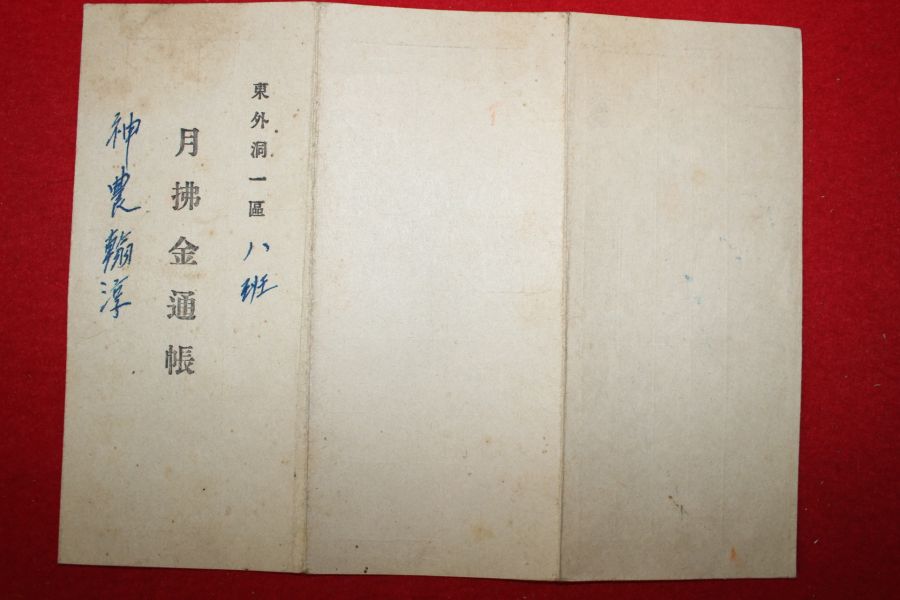 東外洞一區 八班
月拂金通帳
神農翰淳